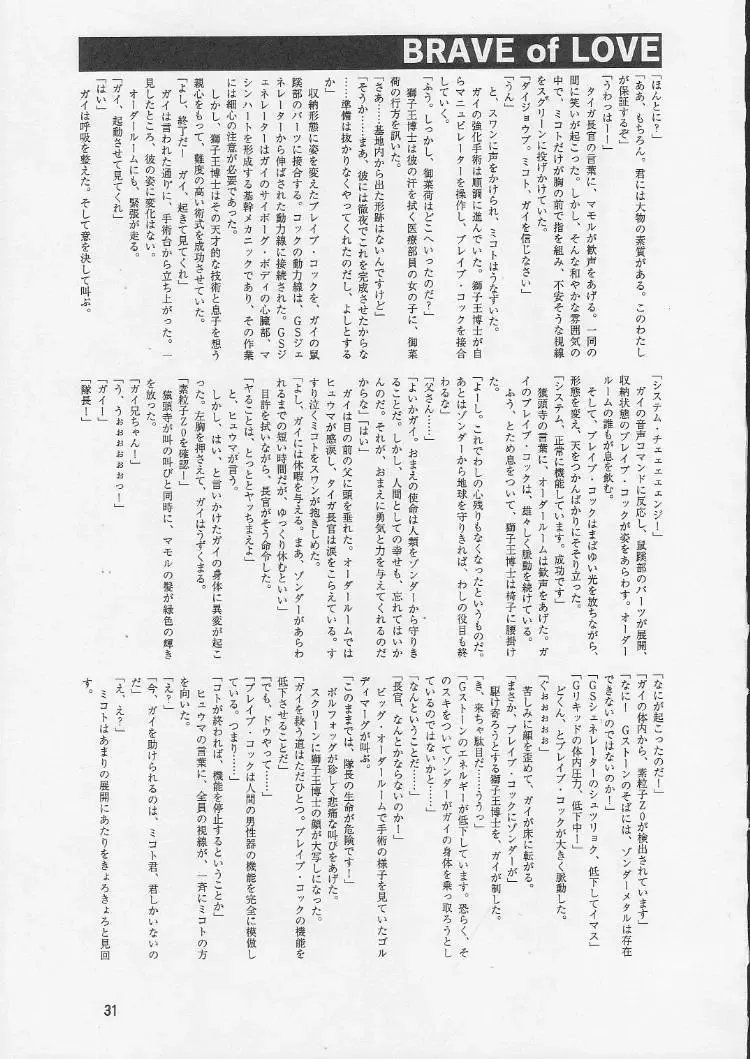 BRAVE of LOVE
「ほんとに?」
「ああ、もちろん。君には大物の素質がある。このわたし
が保証するぞ」
「うわっはーー」
タイガ長官の言葉に、マモルが歓声をあげる。一同の
間に笑いが起こった。しかし、そんな和やかな雰囲気の
中で、ミコトだけが胸の前で指を組み、不安そうな視線
をスグリーンに投げかけていた。
「ダイジョウブ。ミコト、ガイを信じなさい」
「うん」
と、スワンに声をかけられ、ミコトはうなずいた。
ガイの強化手術は順調に進んでいた。獅子王博士が自
らマニュピレーターを操作し、ブレイブ・コックを接合
していく。
「ふう。しっかし、御菜荷はどこへいったのだ?」
獅子王博士は彼の汗を拭く医療部員の女の子に、御菜
荷の行方を訊いた。
「さあ……基地内から出た形跡はないんですけど」
「そうか……まあ、彼には徹夜でこれを完成させたからな
……準備は抜かりなくやってくれたのだし、よしとする
か」
収納形態に姿を変えたブレイブ・コックを、ガイの鼠
蹊部のパーツに接合する。コックの動力線は、GSジェ
ネレーターから伸ばされた動力線に接続された。GSジ
ェネレーターはガイのサイボーグ・ボディの心臓部、マ
シンハートを形成する基幹メカニックであり、その作業
には細心の注意が必要であった。
しかし、獅子王博士はその天才的な技術と息子を想う
親心をもって、難度の高い術式を成功させていた。
「よし、終了だー ガイ、起きて見てくれ」
ガイは言われた通りに、手術台から立ち上がった。一
見したところ、彼の姿に変化はない。
オーダールームにも、緊張が走る。
「ガイ、起動させて見てくれ」
「はい」
ガイは呼吸を整えた。そして意を決して叫ぶ。
「システム・チェェェェエンジー」
ガイの音声コマンドに反応し、鼠蹊部のパーツが展開、
収納状態のブレイブ・コックが姿をあらわす。オーダー
ルームの誰もが息を飲む。
そして、ブレイブ・コックはまばゆい光を放ちながら、
形態を変え、天をつかんばかりにそそり立った。
「システム、正常に機能しています。成功です」
猿頭寺の言葉に、オーダールームは歓声をあげた。ガ
イのブレイブ・コックは、雄々しく脈動を続けている。
ふう、とため息をついて、獅子王博士は椅子に腰掛け
た。
「よーし。これでわしの心残りもなくなったというものだ。
あとはゾンダーから地球を守りきれば、わしの役目も終
わるな」
「父さん……」
「よいかガイ。おまえの使命は人類をゾンダーから守りき
ることだ。しかし、人間としての幸せも、忘れてはいか
んのだ。それが、おまえに勇気と力を与えてくれるのだ
からな」「はい」
ガイは目の前の父に頭を垂れた。オーダールームでは
ヒュウマが感涙し、タイガ長官は涙をこらえている。す
すり泣くミコトをスワンが抱きしめた。
「よし、ガイには休暇を与える。まあ、ゾンダーがあらわ
れるまでの短い時間だが、ゆっくり休むといい」
目許を拭いながら、長官がそう命令した。
「ヤることは、とっととヤッちまえよ」
と、ヒュウマが言う。
しかし、はい、と言いかけたガイの身体に異変が起こ
った。左胸を押さえて、ガイはうずくまる。
「素粒子Z0を確認ー」
猿頭寺が叫の叫びと同時に、マモルの髪が緑色の輝き
を放った。
「ガイ兄ちゃんー」
「う、うぉぉぉぉぉっー」
「ガイー」
「隊長ー」
「なにが起こったのだー」
「ガイの体内から、素粒子Z0が検出されています」
「なにー Gストーンのそばには、ゾンダーメタルは存在
できないのではないのかー」
「GSシェネレーターのシュツリョク、低下してイマス」
「Gリキッドの体内圧力、低下中ー」
どくん、とブレイブ・コックが大きく脈動した。
「ぐぉぉぉぉぉ」
苦しみに顔を歪めて、ガイが床に転がる。
「まさか、ブレイブ・コックにゾンダーが」
駆け寄ろうとする獅子王博士を、ガイが制した。
「き、来ちゃ駄目だ……ううっ」
「Gストーンのエネルギーが低下しています。恐らく、そ
のスキをついてゾンダーがガイの身体を乗っ取ろうとし
ているのではないかと……」
「なんということだ……」
「長官、なんとかならないのかー」
ビッグ・オーダールームで手術の様子を見ていたゴル
ディマーグが叫ぶ。
「このままでは、隊長の生命が危険ですー」
ボルフォッグが珍しく悲痛な叫びをあげた。
スクリーンに獅子王博士の顔が大写しになった。
「ガイを救う道はただひとつ。ブレイブ・コックの機能を
低下させることだ」
「でも、ドウやって……」
「ブレイブ・コックは人間の男性器の機能を完全に模倣し
ている。つまり……」
「コトが終われば、機能を停止するということか」
ヒュウマの言葉に、全員の視線が、一斉にミコトの方
を向いた。
「え?」
「今、ガイを助けられるのは、ミコト君、君しかいないの
だ」
「え、え?」
ミコトはあまりの展開にあたりをきょろきょろと見回
す。
31